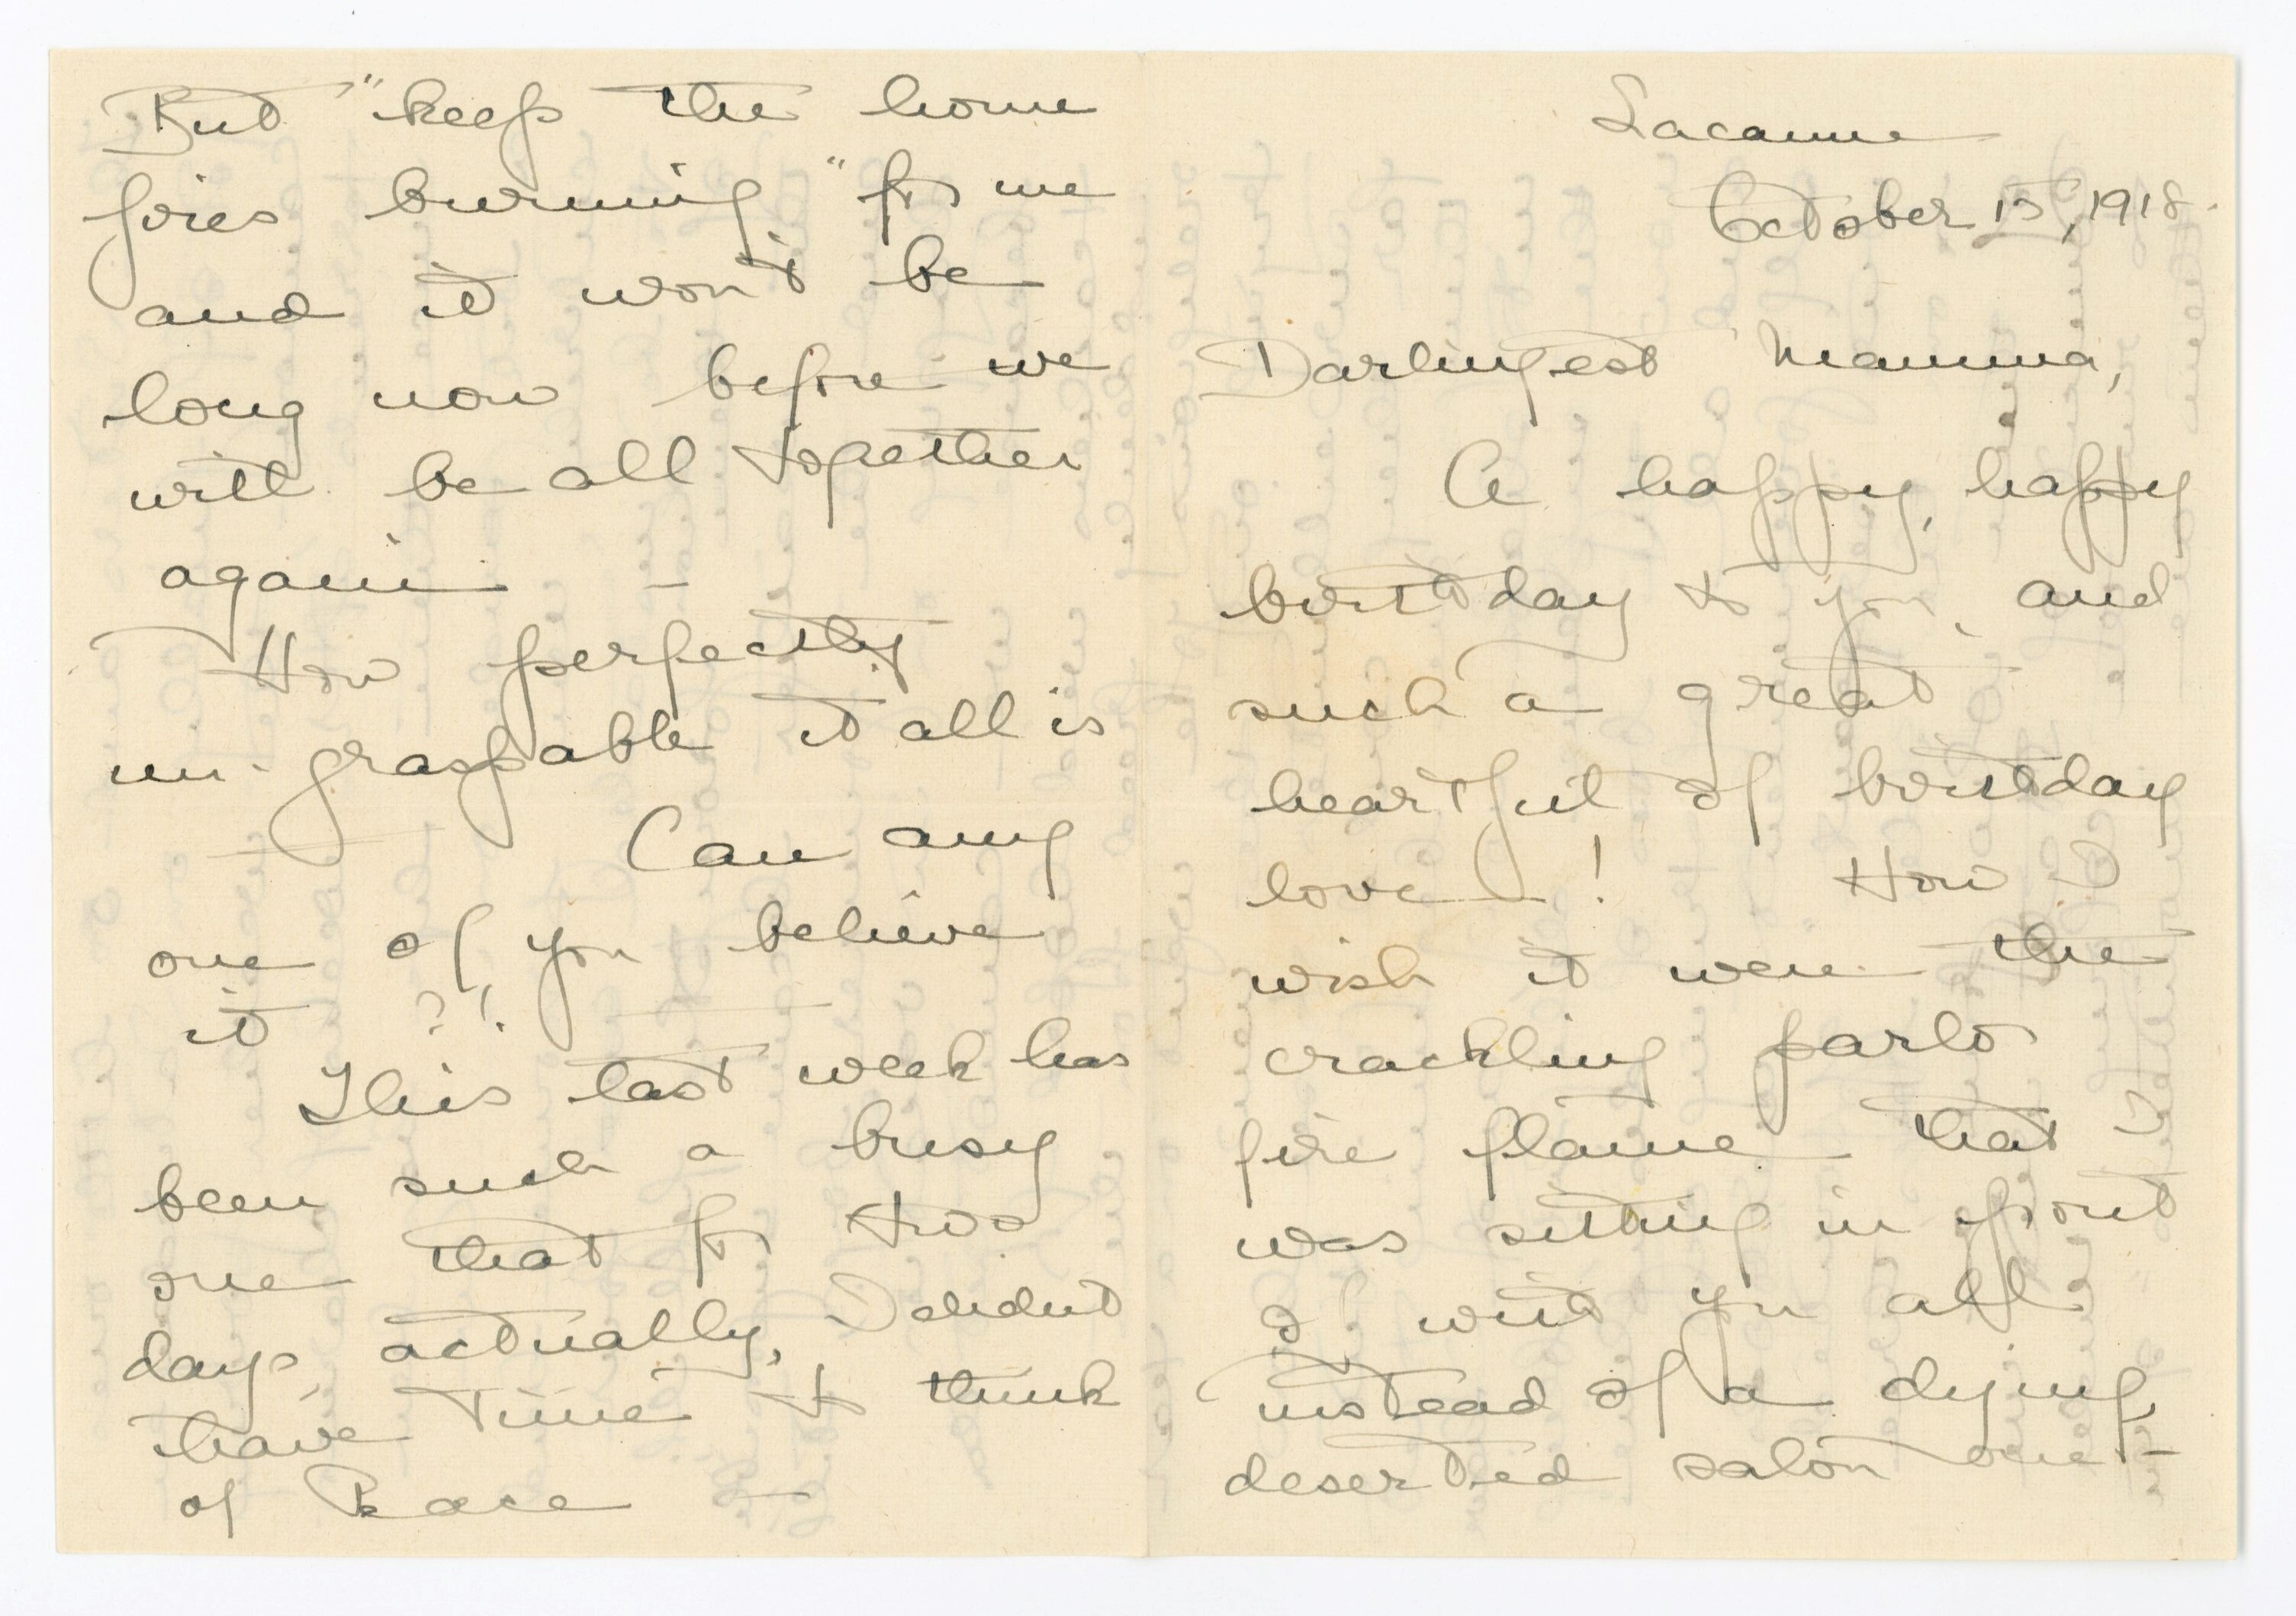 Lacaune
October 15, 1918.
Darlingest Mamma,
A happy, happy
birthday to you, and
such a great
heartful of birthday
love! How I
wish it were the
crackling parlor
fire flame that I
was sitting in front
of with you all
instead of a dying,
deserted salon one -
But "keep the home
fires burning" for me
and it won't be
long now before we
will be all together
again -
How perfectly
un-graspable it all is
Can any
one of you believe
it ?!
This last week has
been such a busy
one that for two
days, actually, I didnt
have time to think
of Peace -